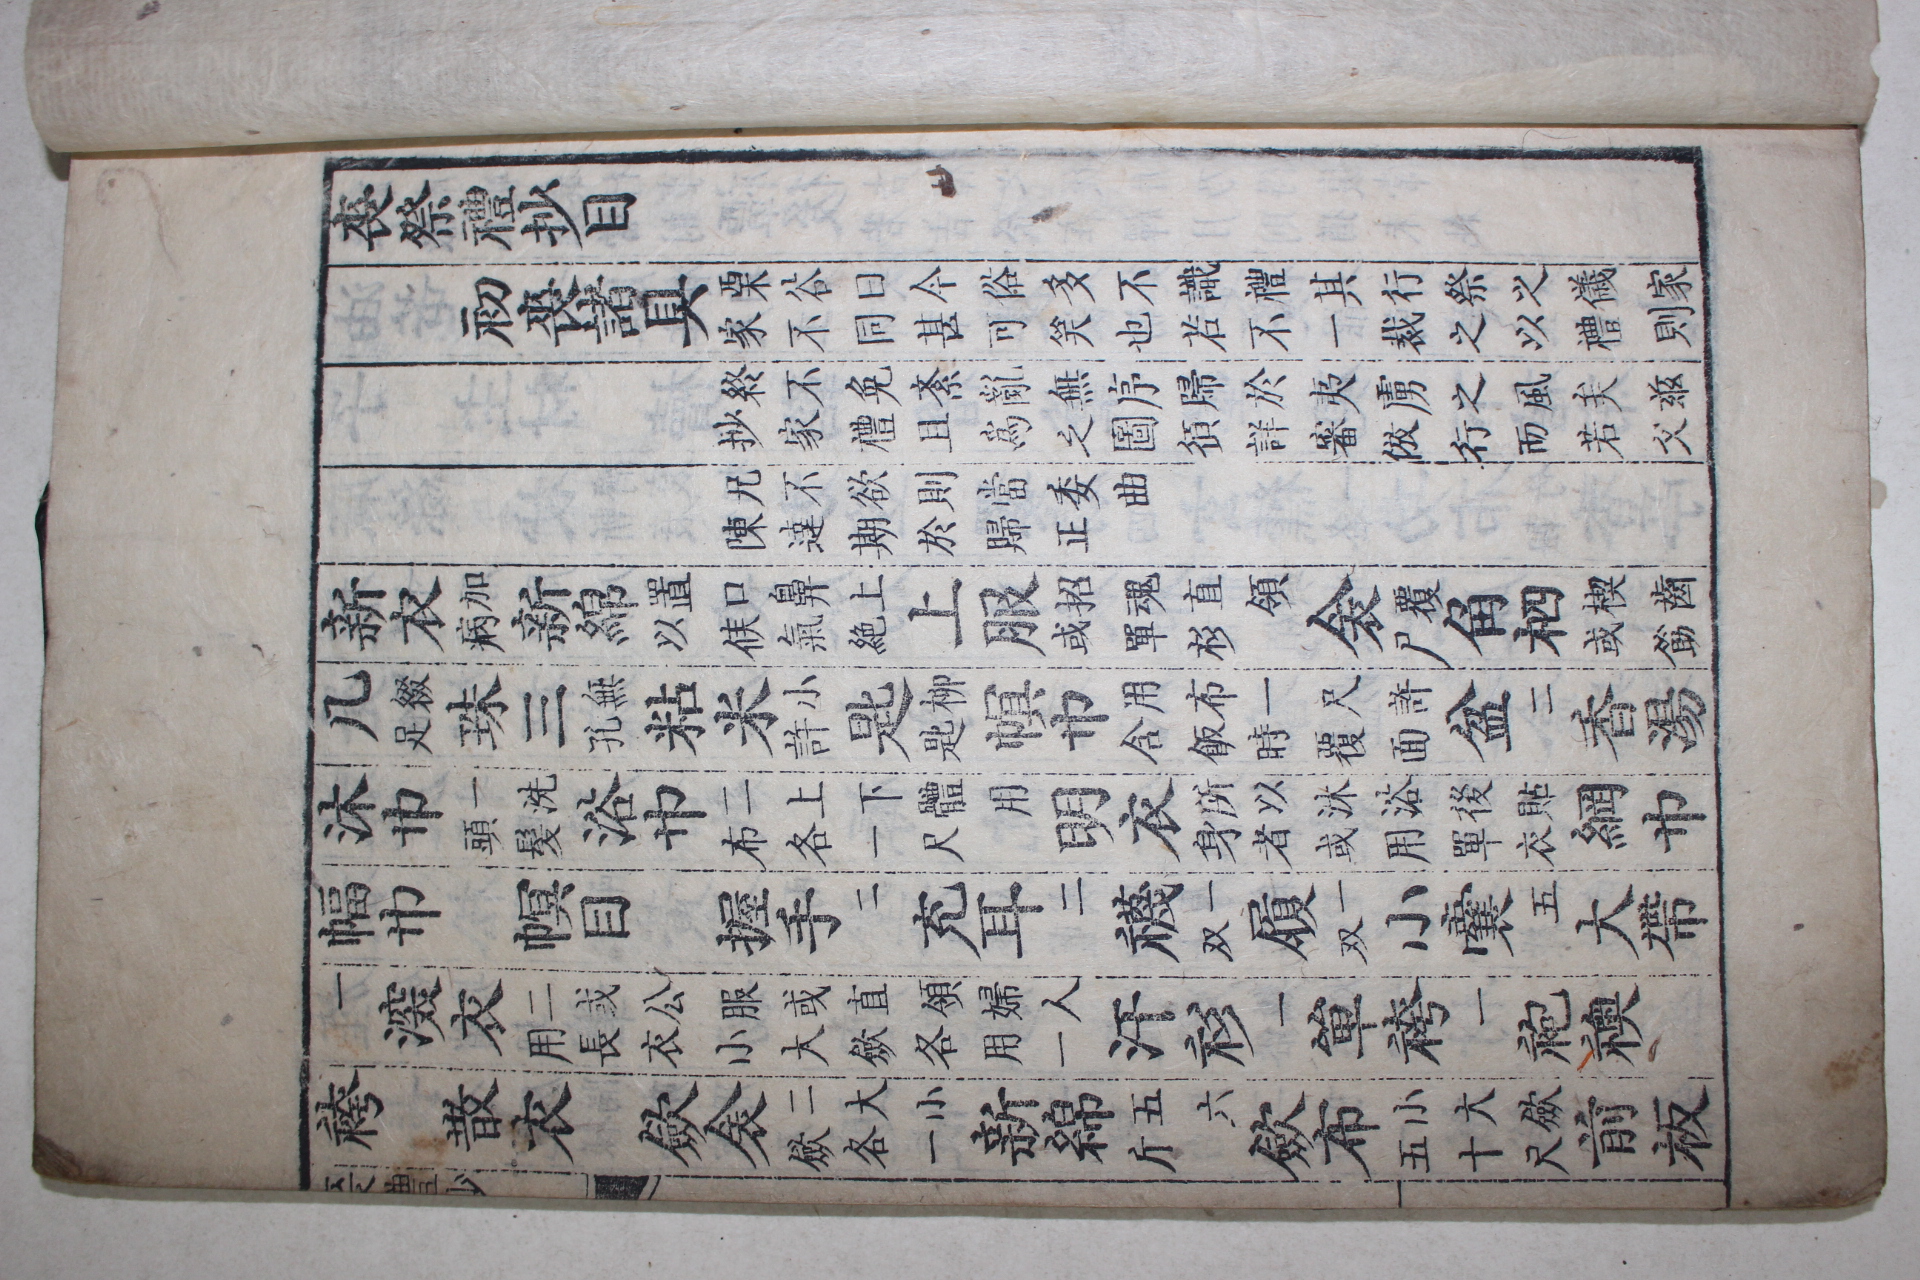 喪祭禮抄目
初喪諸具栗谷曰今俗多不識禮其行祭之儀家家不同甚可笑也若不一裁之以禮則
終不免紊亂無序歸於夷虜之風矣玆抄家禮且爲之圖須詳審倣行而若父
兄不欲則當委曲陳達期於歸正
新衣加病新綿置口鼻上以俟氣絶上服招魂直領或單衫衾覆尸角柶楔齒或筯
几綴足珠三無孔粘米小許匙柳匙幎巾用布一尺許含飯時覆面盆二香湯
沐巾一洗頭髮浴巾二上下體用布各一尺明衣所以沐浴後貼身者或用單衣網巾
幅巾幎目握手二充耳二襪一双履一双小囊五大帶
一深衣二或公服或直領婦人用長衣小大歛各用一汗衫一單袴一袍襖
袴散衣歛衾二大小歛各一新綿五六斤歛布小大歛五十尺前板
喪禮抄 一